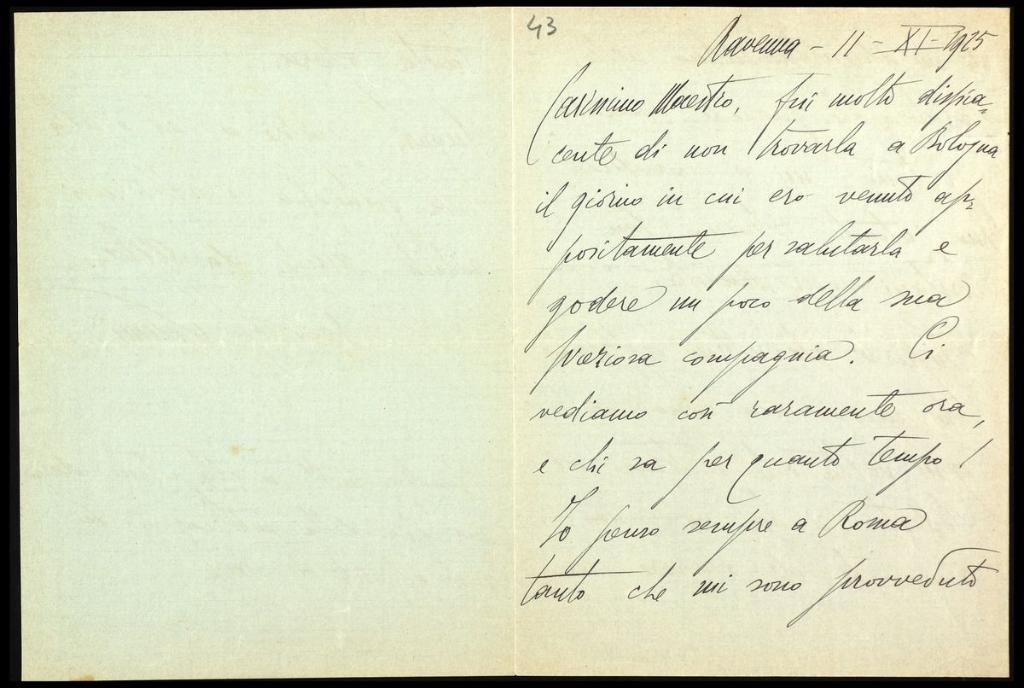 43
Ravenna - 11 - XI - 1925
Carissimo Maestro, fui molto dispia-
cente di non trovarla a Bologna
il giorno in cui ero venuto ap-
positamente per salutarla e
godere un poco della sua
preziosa compagnia. Ci
vediamo così raramente ora,
e chi sa per quanto tempo!
Io penso sempre a Roma
tanto che mi sono provveduto